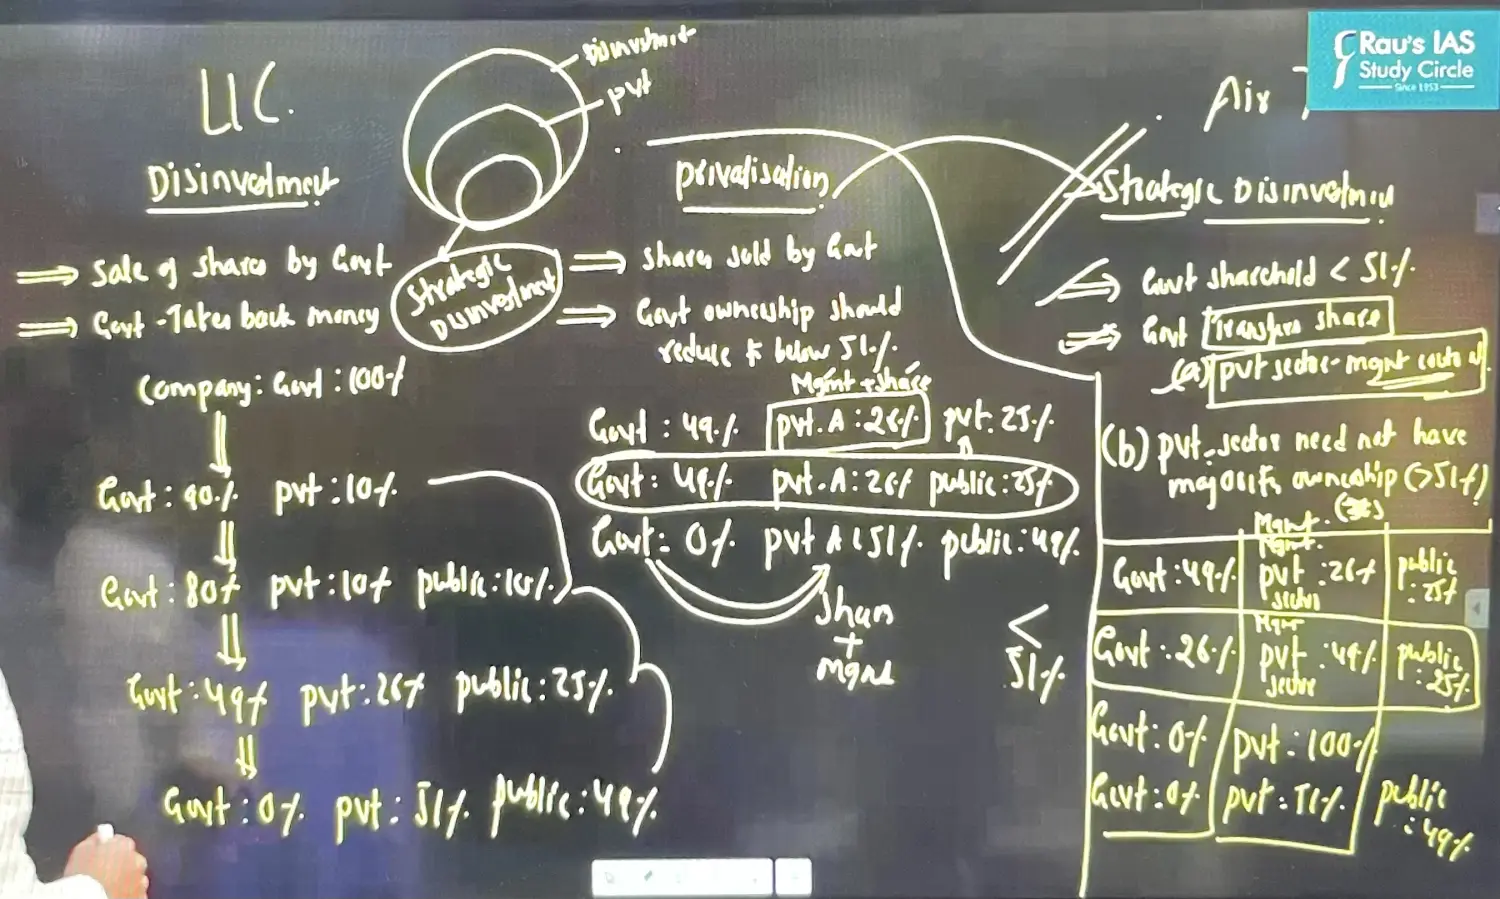 Rau's IAS
Study Circle
Since 1953
LIC.
Disinvestment
pvt
Air
Disinvestment
privatisation
Strategic Disinvestment
⇒ Sale of shares by Govt
⇒ Govt - Takes back money
Strategic
Disinvestment
⇒ shares sold by Govt
⇒ Govt ownership should
reduce to below 51%.
⇒ Govt sharehold < 51%.
⇒ Govt Transfers share
(a) pvt sector - mgmt control
(b) pvt. sector need not have
majority ownership (>51%)
Company: Govt: 100%
Govt: 90% pvt: 10%
Govt: 80% pvt: 10% public: 10%
Govt: 49% pvt: 26% public: 25%
Govt: 0% pvt: 51% public: 49%
Mgmt + share
Govt: 49% pvt. A: 26% pvt: 25%
Govt: 49% pvt. A: 26% public: 25%
Govt: 0% pvt A: 51% public: 49%
Share
+
Mgmt
<
51%
Mgmt.
Mgmt.
Govt: 49% pvt sector: 26% public: 25%
Mgmt
Govt: 26% pvt sector: 49% public: 25%
Govt: 0% pvt: 100%
Govt: 0% pvt: 51% public: 49%